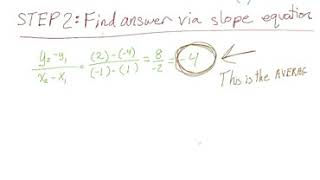 STEP 2: Find answer via slope equation
y₂-y₁ / x₂-x₁ = (2)-(-4) / (-1)-(1) = 8 / -2 = -4
This is the AVERAGE